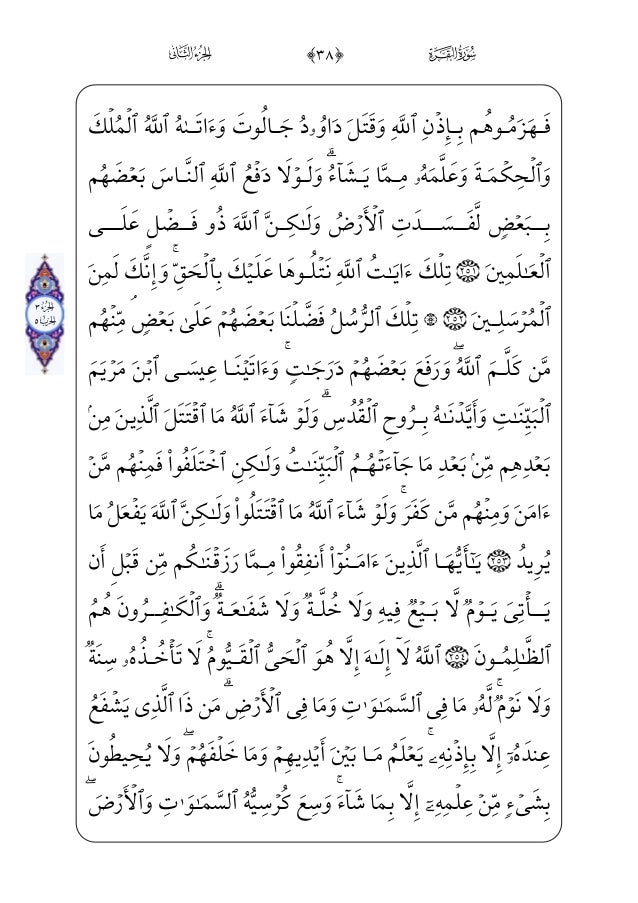 سُورَةُ البَقَرَةِ ﴿٣٨﴾ الجُزءُ الثَّانِى
فَهَزَمُوهُم بِإِذْنِ ٱللَّهِ وَقَتَلَ دَاوُۥدُ جَالُوتَ وَءَاتَىٰهُ ٱللَّهُ ٱلْمُلْكَ
وَٱلْحِكْمَةَ وَعَلَّمَهُۥ مِمَّا يَشَآءُ ۗ وَلَوْلَا دَفْعُ ٱللَّهِ ٱلنَّاسَ بَعْضَهُم
بِبَعْضٍ لَّفَسَدَتِ ٱلْأَرْضُ وَلَٰكِنَّ ٱللَّهَ ذُو فَضْلٍ عَلَى
ٱلْعَٰلَمِينَ ٢٥١ تِلْكَ ءَايَٰتُ ٱللَّهِ نَتْلُوهَا عَلَيْكَ بِٱلْحَقِّ ۚ وَإِنَّكَ لَمِنَ
الجزء ٣
الحزب ٥
ٱلْمُرْسَلِينَ ٢٥٢ ۞ تِلْكَ ٱلرُّسُلُ فَضَّلْنَا بَعْضَهُمْ عَلَىٰ بَعْضٍ ۘ مِّنْهُم
مَّن كَلَّمَ ٱللَّهُ ۖ وَرَفَعَ بَعْضَهُمْ دَرَجَٰتٍ ۚ وَءَاتَيْنَا عِيسَى ٱبْنَ مَرْيَمَ
ٱلْبَيِّنَٰتِ وَأَيَّدْنَٰهُ بِرُوحِ ٱلْقُدُسِ ۗ وَلَوْ شَآءَ ٱللَّهُ مَا ٱقْتَتَلَ ٱلَّذِينَ مِنۢ
بَعْدِهِم مِّنۢ بَعْدِ مَا جَآءَتْهُمُ ٱلْبَيِّنَٰتُ وَلَٰكِنِ ٱخْتَلَفُوا۟ فَمِنْهُم مَّنْ
ءَامَنَ وَمِنْهُم مَّن كَفَرَ ۚ وَلَوْ شَآءَ ٱللَّهُ مَا ٱقْتَتَلُوا۟ وَلَٰكِنَّ ٱللَّهَ يَفْعَلُ مَا
يُرِيدُ ٢٥٣ يَٰٓأَيُّهَا ٱلَّذِينَ ءَامَنُوٓا۟ أَنفِقُوا۟ مِمَّا رَزَقْنَٰكُم مِّن قَبْلِ أَن
يَأْتِىَ يَوْمٌ لَّا بَيْعٌ فِيهِ وَلَا خُلَّةٌ وَلَا شَفَٰعَةٌ ۗ وَٱلْكَٰفِرُونَ هُمُ
ٱلظَّٰلِمُونَ ٢٥٤ ٱللَّهُ لَآ إِلَٰهَ إِلَّا هُوَ ٱلْحَىُّ ٱلْقَيُّومُ ۚ لَا تَأْخُذُهُۥ سِنَةٌ
وَلَا نَوْمٌ ۚ لَّهُۥ مَا فِى ٱلسَّمَٰوَٰتِ وَمَا فِى ٱلْأَرْضِ ۗ مَن ذَا ٱلَّذِى يَشْفَعُ
عِندَهُۥٓ إِلَّا بِإِذْنِهِۦ ۚ يَعْلَمُ مَا بَيْنَ أَيْدِيهِمْ وَمَا خَلْفَهُمْ ۖ وَلَا يُحِيطُونَ
بِشَىْءٍ مِّنْ عِلْمِهِۦٓ إِلَّا بِمَا شَآءَ ۚ وَسِعَ كُرْسِيُّهُ ٱلسَّمَٰوَٰتِ وَٱلْأَرْضَ ۖ